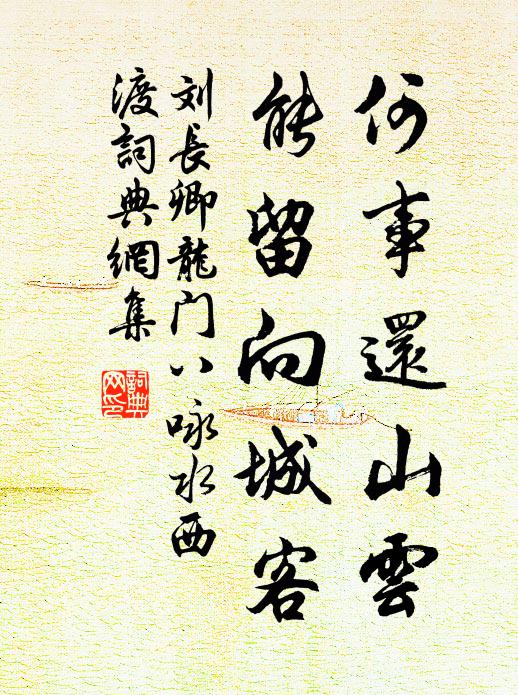 何事還山雲
能留向城客
刘長卿龍门八咏水西
渡詞典網集
詞典
网印